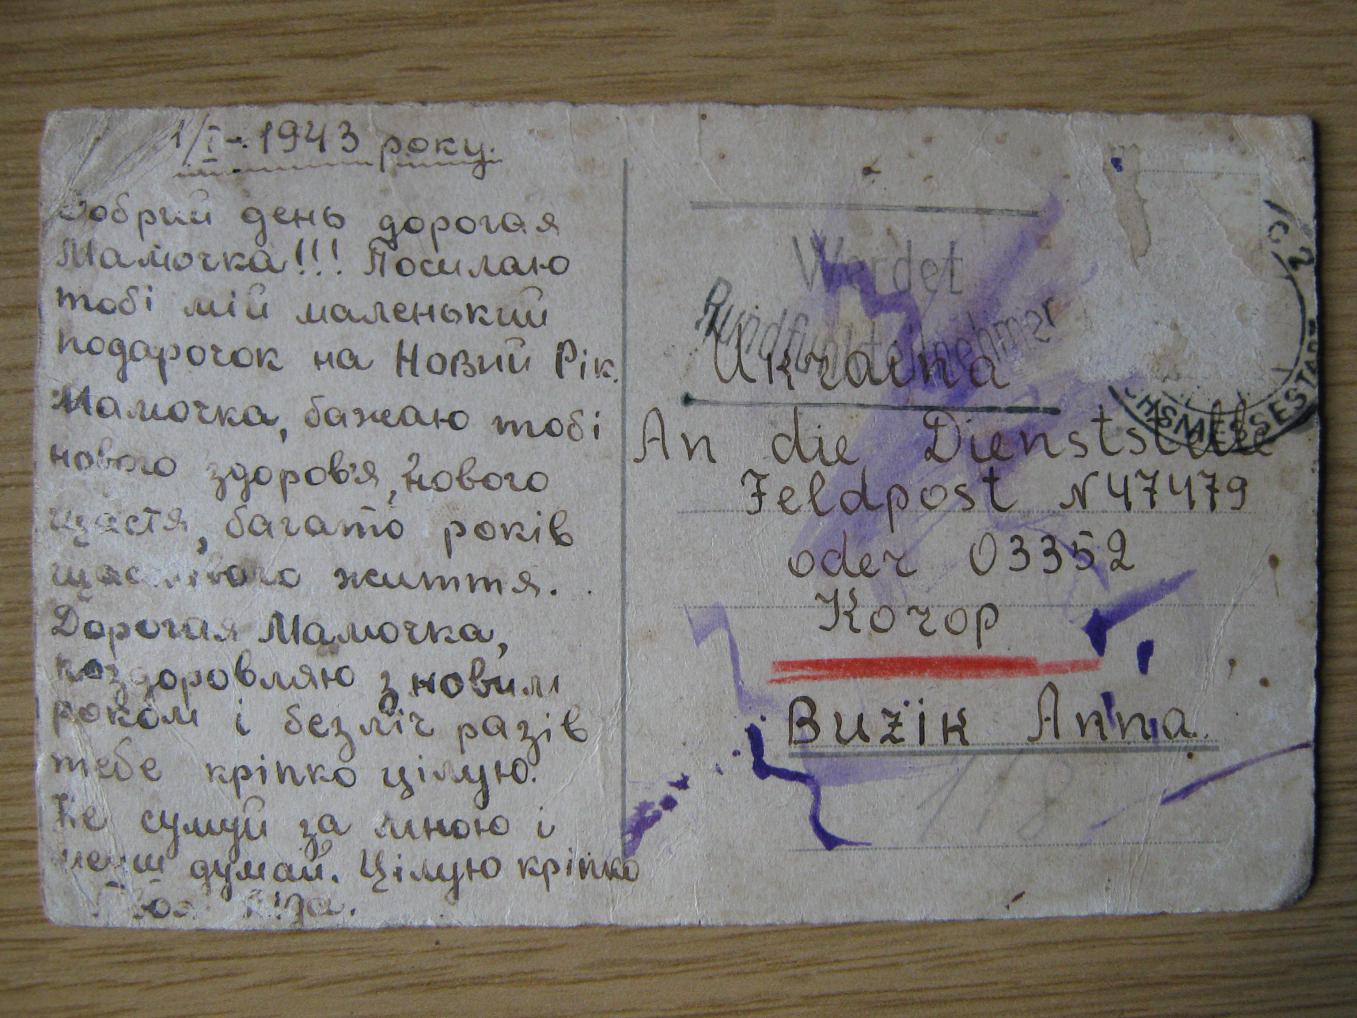 1/I-1943 року.
Добрий день дорогая
Мамочка!!! Посилаю
тобі мій маленький
подарочок на Новий Рік.
Мамочка, бажаю тобі
нового здоров'я, нового
щастя, багато років
щасливого життя.
Дорогая Мамочка,
поздоровляю з новим
роком і безліч разів
тебе кріпко цілую.
Не сумуй за мною і
менш думай. Цілую кріпко
Твоя
Werdet
Rundfunkteilnehmer
Ukraina
HSMESSESTADT
An die Dienststelle
Feldpost N 47479
oder 03352
Korop
Bużik Anna
118